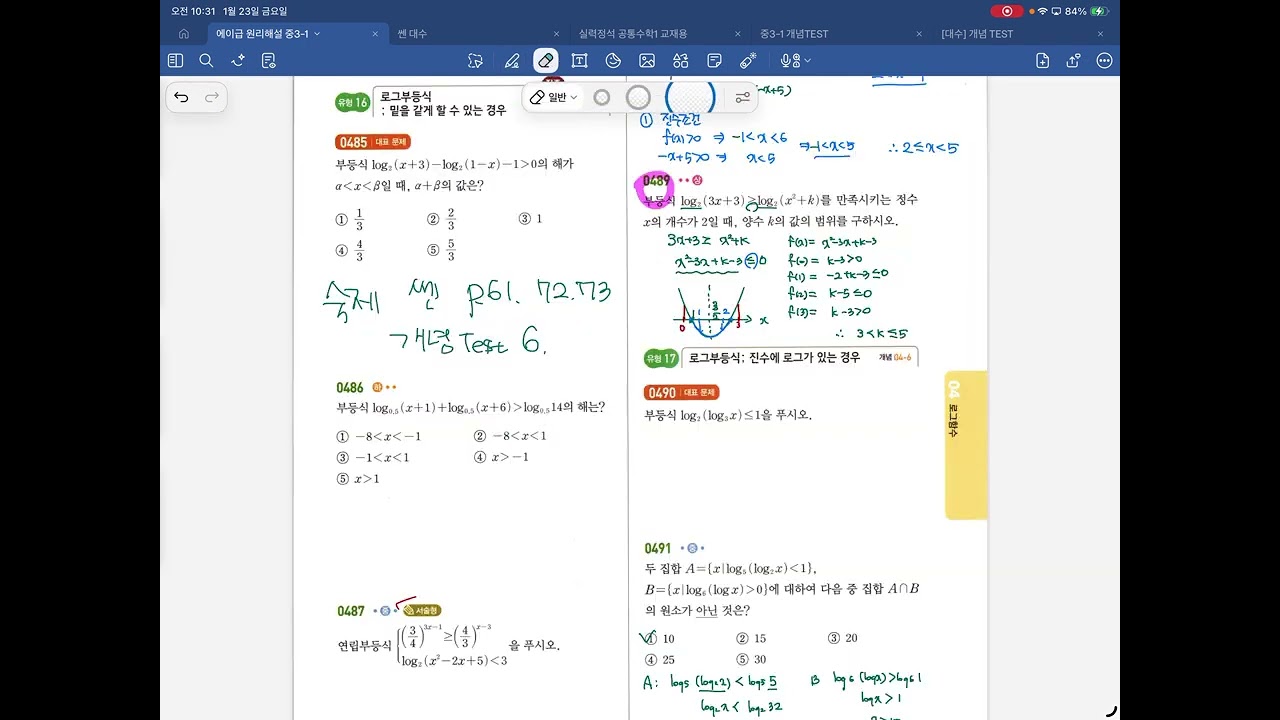 오전 10:31 1월 23일 금요일
84%
에이급 원리해설 중3-1
쎈 대수
실력정석 공통수학1 교재용
중3-1 개념TEST
[대수] 개념 TEST
일반
유형 16 로그부등식
; 밑을 같게 할 수 있는 경우
0485 대표 문제
부등식 log₂(x+3)−log₂(1−x)−1>0의 해가
α<x<β일 때, α+β의 값은?
① 1/3 ② 2/3 ③ 1
④ 4/3 ⑤ 5/3
숙제 쎈 p61. 72.73
개념 Test 6.
0486 하
부등식 log₀.₅(x+1)+log₀.₅(x+6)>log₀.₅14의 해는?
① −8<x<−1 ② −8<x<1
③ −1<x<1 ④ x>−1
⑤ x>1
0487 중 서술형
연립부등식 { (3/4)^(3x−1) ≥ (4/3)^(x−3)
log₂(x²−2x+5)<3 을 푸시오.
-x+5)
① 진수조건
f(x)>0 ⇒ -1<x<6
-x+5>0 ⇒ x<5
⇒ -1<x<5 ∴ 2≤x<5
0489 상
부등식 log₂(3x+3)≥log₂(x²+k)를 만족시키는 정수
x의 개수가 2일 때, 양수 k의 값의 범위를 구하시오.
3x+3≥ x²+k
x²-3x+k-3≤0
f(x)= x²-3x+k-3
k-3>0
f(1)= -2+k-3≤0
f(2)= k-5≤0
f(3)= k-3>0
∴ 3<k≤5
0 1 3/2 2 3 x
유형 17 로그부등식; 진수에 로그가 있는 경우 개념 04-6
0490 대표 문제
부등식 log₂(log₃x)≤1을 푸시오.
04 로그함수
0491 중
두 집합 A={x|log₅(log₂x)<1},
B={x|log₆(log x)>0}에 대하여 다음 중 집합 A∩B
의 원소가 아닌 것은?
① 10 ② 15 ③ 20
④ 25 ⑤ 30
A: log₅(log₂x) < log₅5
log₂x < log₂32
B log₆(logx)>log₆1
logx > 1